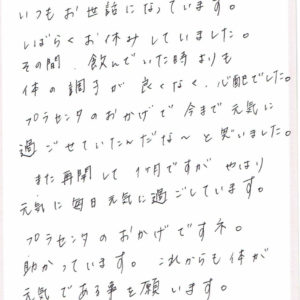 いつもお世話になっています。
しばらくお休みしていました。
その間、飲んでいた時よりも
体の調子が良くなく、心配でした。
プラセンタのおかげで今まで元気に
過ごせていたんだな〜と思いました。
また再開して1ヶ月ですがやはり
元気に毎日元気に過ごしています。
プラセンタのおかげですネ。
助かっています。これからも体が
元気である事を願います。